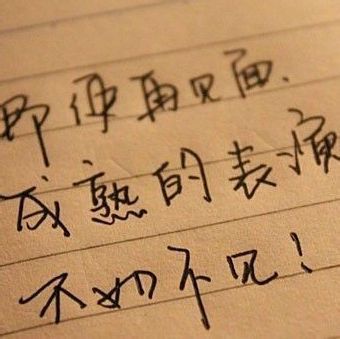 即使再见面、
成熟的表演
不如不见！